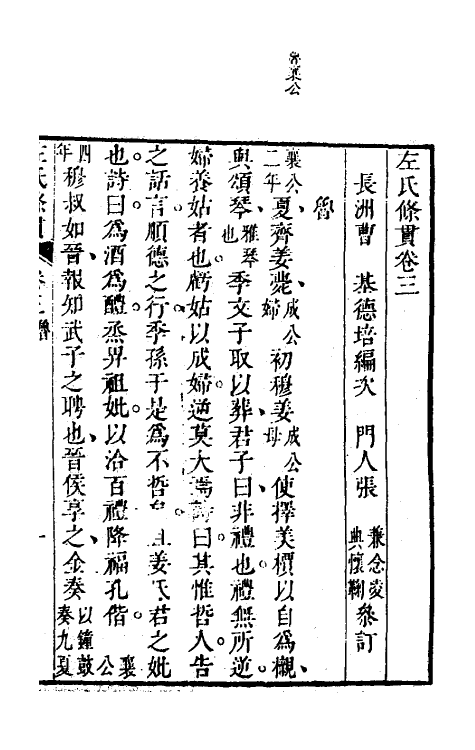 魯襄公
左氏條貫卷三
長洲曹　基德培編次　門人張兼念茲典懷鞠參訂
魯
襄公二年夏齊姜薨成公婦初穆姜成公母使擇美檟以自爲櫬
與頌琴雅琴也季文子取以葬君子曰非禮也禮無所逆
婦養姑者也虧姑以成婦逆莫大焉詩曰其惟哲人告
之話言順德之行季孫于是爲不哲矣且姜氏君之妣
也詩曰爲酒爲醴烝畀祖妣以洽百禮降福孔偕襄公
四年穆叔如晉報知武子之聘也晉侯享之金奏以鐘鼓奏九夏
左氏條貫　卷三魯　一